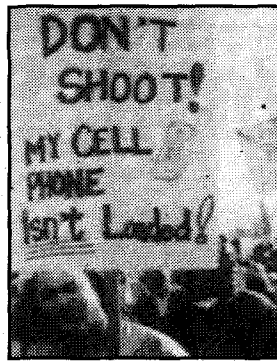 DON'T
SHOOT!
MY CELL
PHONE
Isn't Loaded!